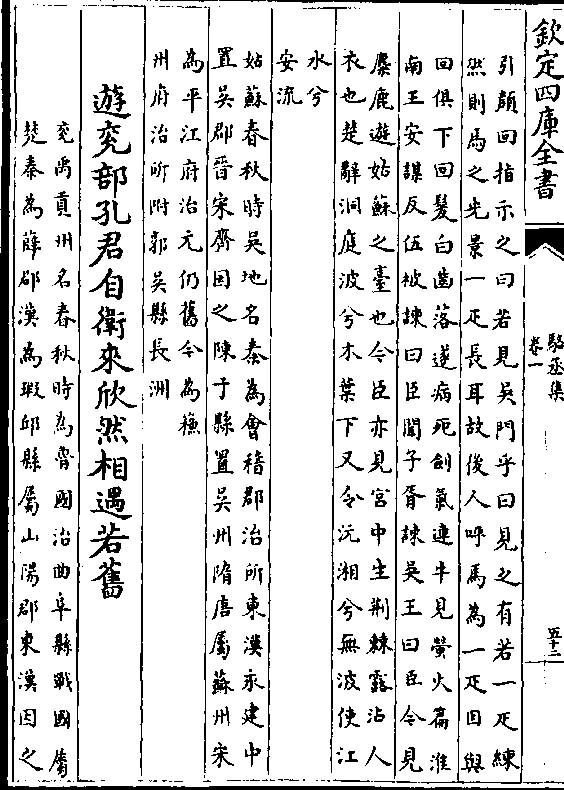 欽定四庫全書
駱丞集
卷一
五十二
引顔回指示之曰若見吳門乎曰見之有若一疋練
然則馬之光景一疋長耳故後人呼馬為一疋回與
回俱下回髮白齒落遂病死劍氣連牛見螢火篇淮
南王安謀反伍被諫曰臣聞子胥諫吳王曰臣今見
麋鹿遊姑蘇之臺也今臣亦見宮中生荆棘露沾人
衣也楚辭洞庭波兮木葉下又令沅湘兮無波使江
水兮
安流
姑蘇春秋時吳地名秦為會稽郡治所東漢永建中
置吳郡晉宋齊因之陳于縣置吳州隋唐屬蘇州宋
為平江府治元仍舊今為蘓
州府治所附郭吳縣長洲
遊兖部孔君自衛來欣然相遇若舊
兖禹貢州名春秋時為魯國治曲阜縣戰國屬
楚秦為薛郡漢為瑕邱縣屬山陽郡東漢因之